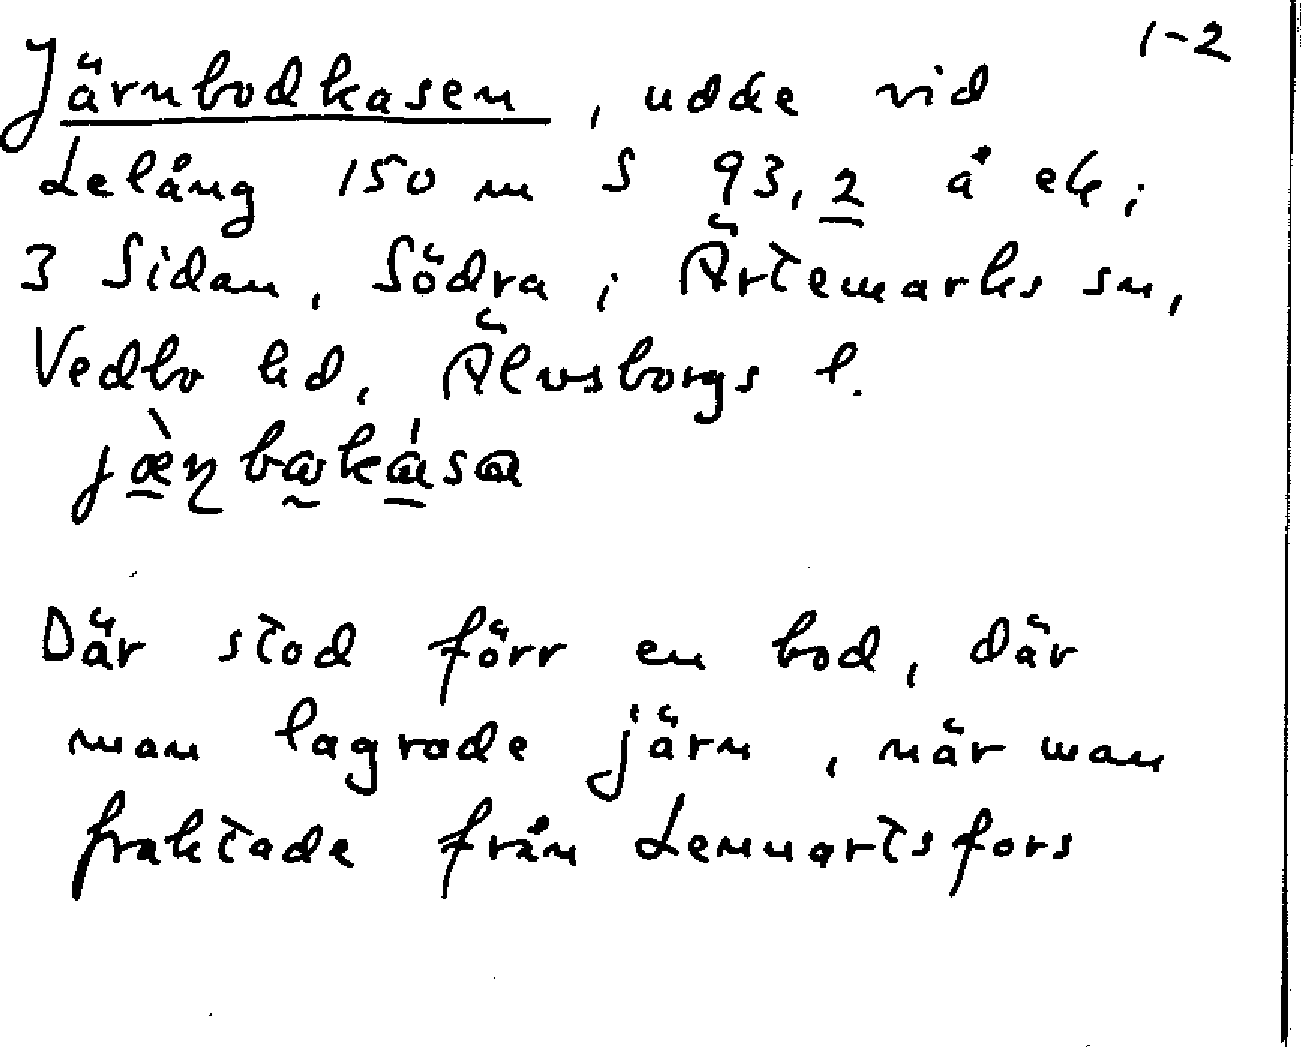 1-2
Järnbodkasen, udde vid
Lelång 150 m S 93,2 å ek;
3 Sidan, Södra; Ärtemarks sn,
Vedbo hd, Älvsborgs l.
Där stod förr en bod, där
man lagrade järn, när man
fraktade från Lennartsfors